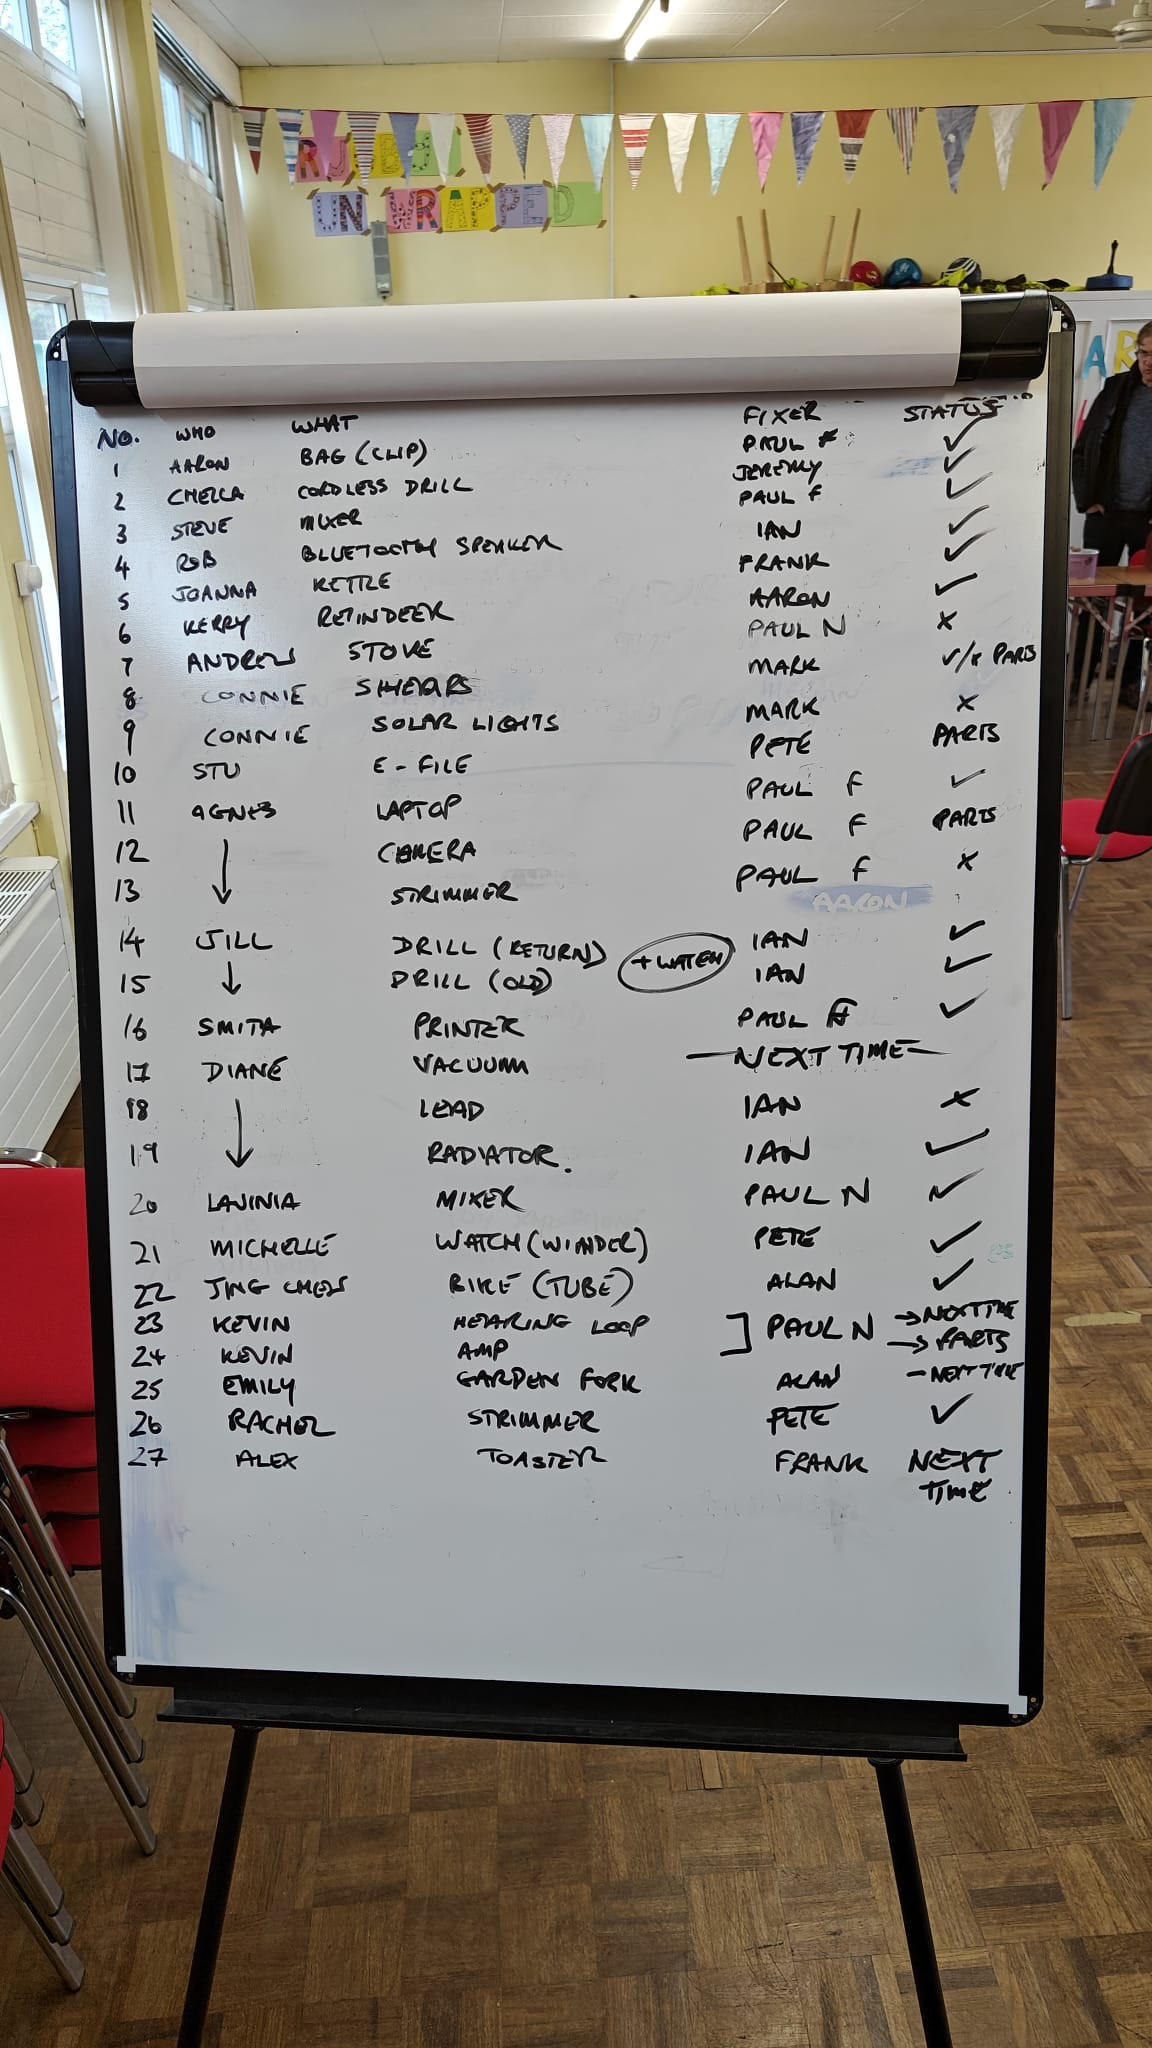 RUBBI
UNWRAPPED
AR
NO. WHO WHAT FIXER STATUS
1 AARON BAG (CLIP) PAUL F ✓
2 CHELLA CORDLESS DRILL JEREMY ✓
3 STEVE MIXER PAUL F ✓
4 ROB BLUETOOTH SPEAKER IAN ✓
5 JOANNA KETTLE FRANK ✓
6 KERRY REINDEER AARON ✓
7 ANDREW STOVE PAUL N X
8 CONNIE SHEARS MARK ✓/X PARTS
9 CONNIE SOLAR LIGHTS MARK X
10 STU E-FILE PETE PARTS
11 AGNES LAPTOP PAUL F ✓
12 ↓ CAMERA PAUL F PARTS
13 STRIMMER PAUL F X
AARON
14 JILL DRILL (RETURN) + WATCH IAN ✓
15 ↓ DRILL (OLD) IAN ✓
16 SMITA PRINTER PAUL F ✓
17 DIANE VACUUM —NEXT TIME—
18 ↓ LEAD IAN X
19 RADIATOR. IAN ✓
20 LAVINIA MIXER PAUL N ✓
21 MICHELLE WATCH (WINDER) PETE ✓
22 JING BIKE (TUBE) ALAN ✓
23 KEVIN HEARING LOOP ] PAUL N → NEXT TIME
24 KEVIN AMP → PARTS
25 EMILY GARDEN FORK ALAN – NEXT TIME
26 RACHEL STRIMMER PETE ✓
27 ALEX TOASTER FRANK NEXT
TIME